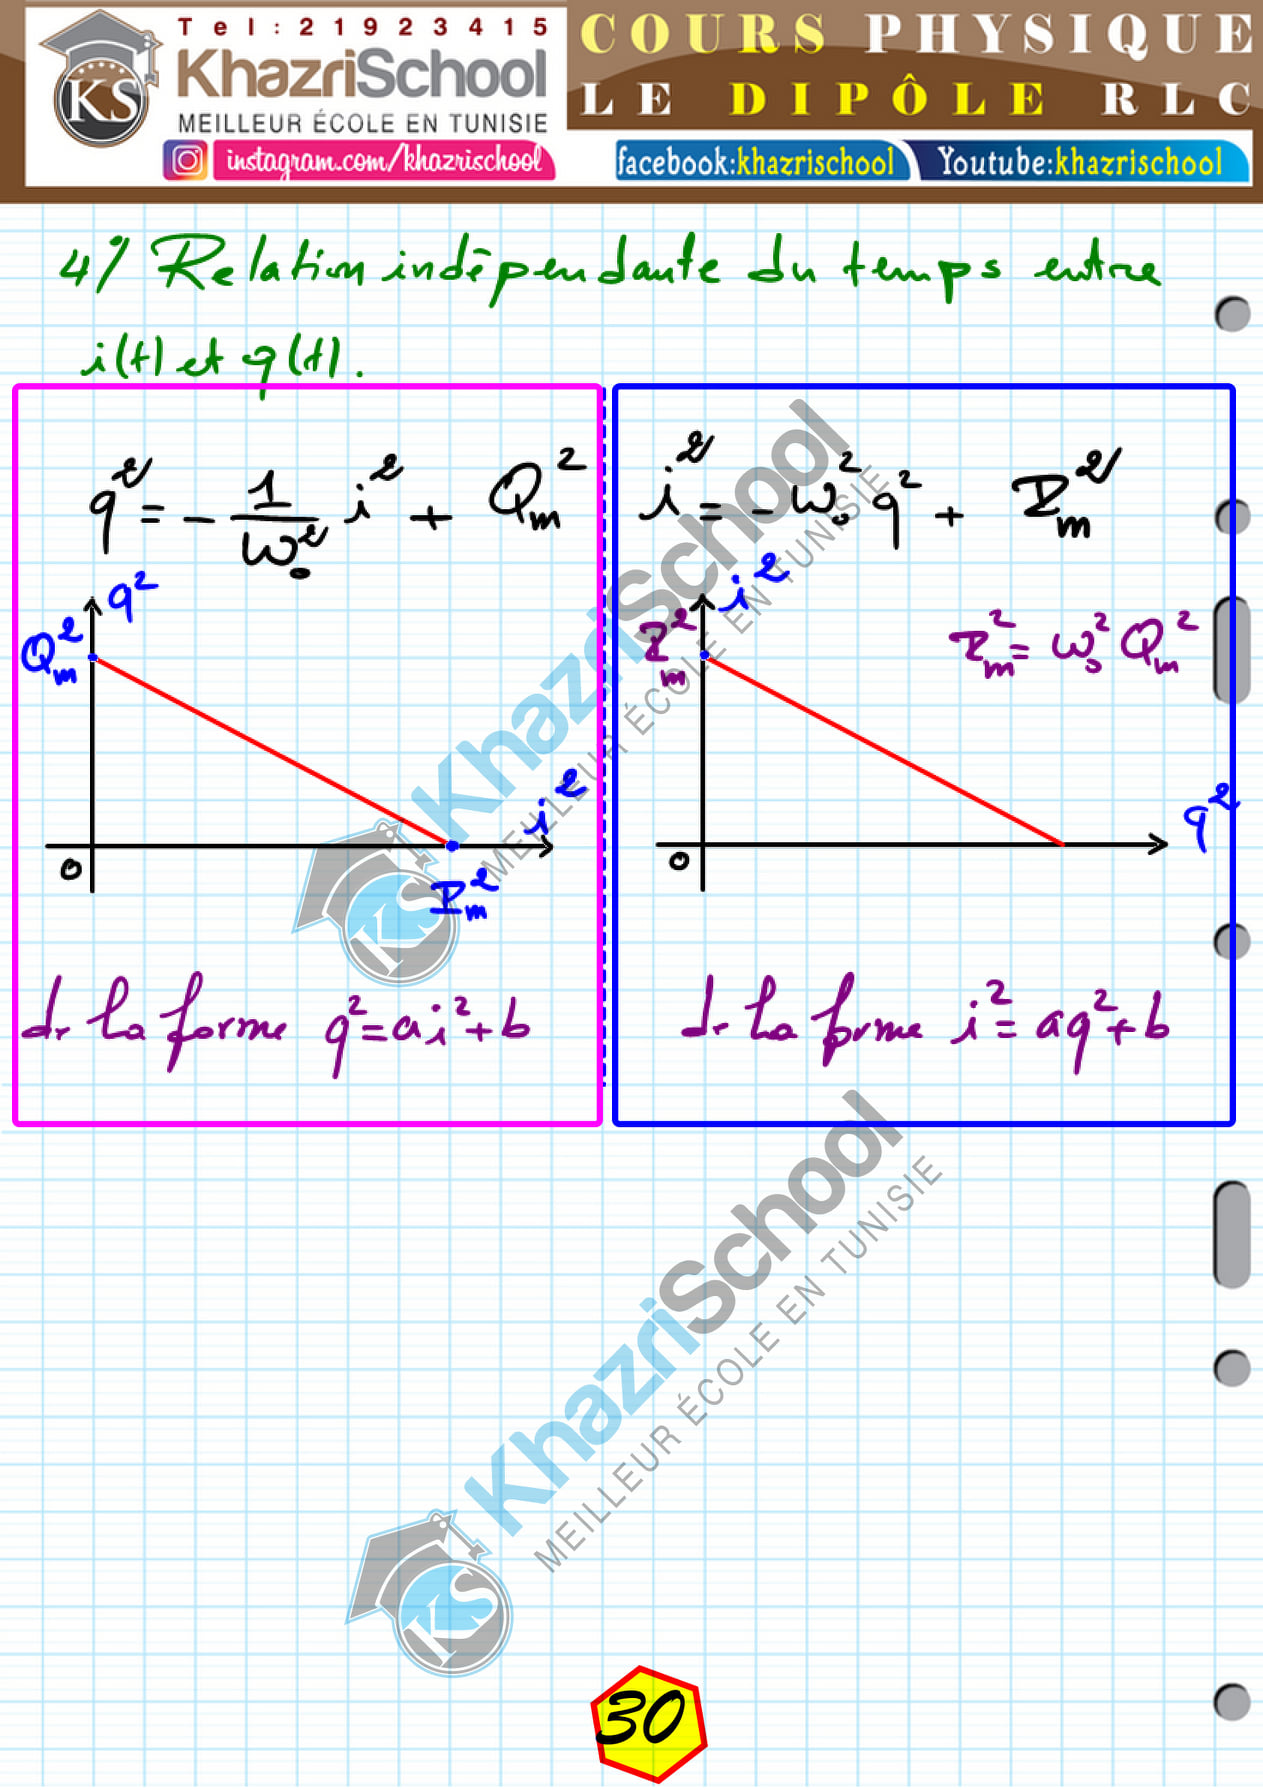 Tel:21923415
KhazriSchool
MEILLEUR ÉCOLE EN TUNISIE
instagram.com/khazrischool
COURS PHYSIQUE
LE DIPÔLE RLC
facebook:khazrischool
Youtube:khazrischool
KS
4°/ Relation indépendante du temps entre
i(t) et q(t).
q² = - 1/ω₀² i² + Qm²
q²
Qm²
i²
0
Im²
de la forme q² = ai² + b
i² = - ω₀² q² + Im²
i²
Im²
Im² = ω₀² Qm²
q²
0
de la forme i² = aq² + b
KhazriSchool
MEILLEUR ÉCOLE EN TUNISIE
KS
KhazriSchool
MEILLEUR ÉCOLE EN TUNISIE
KS
30